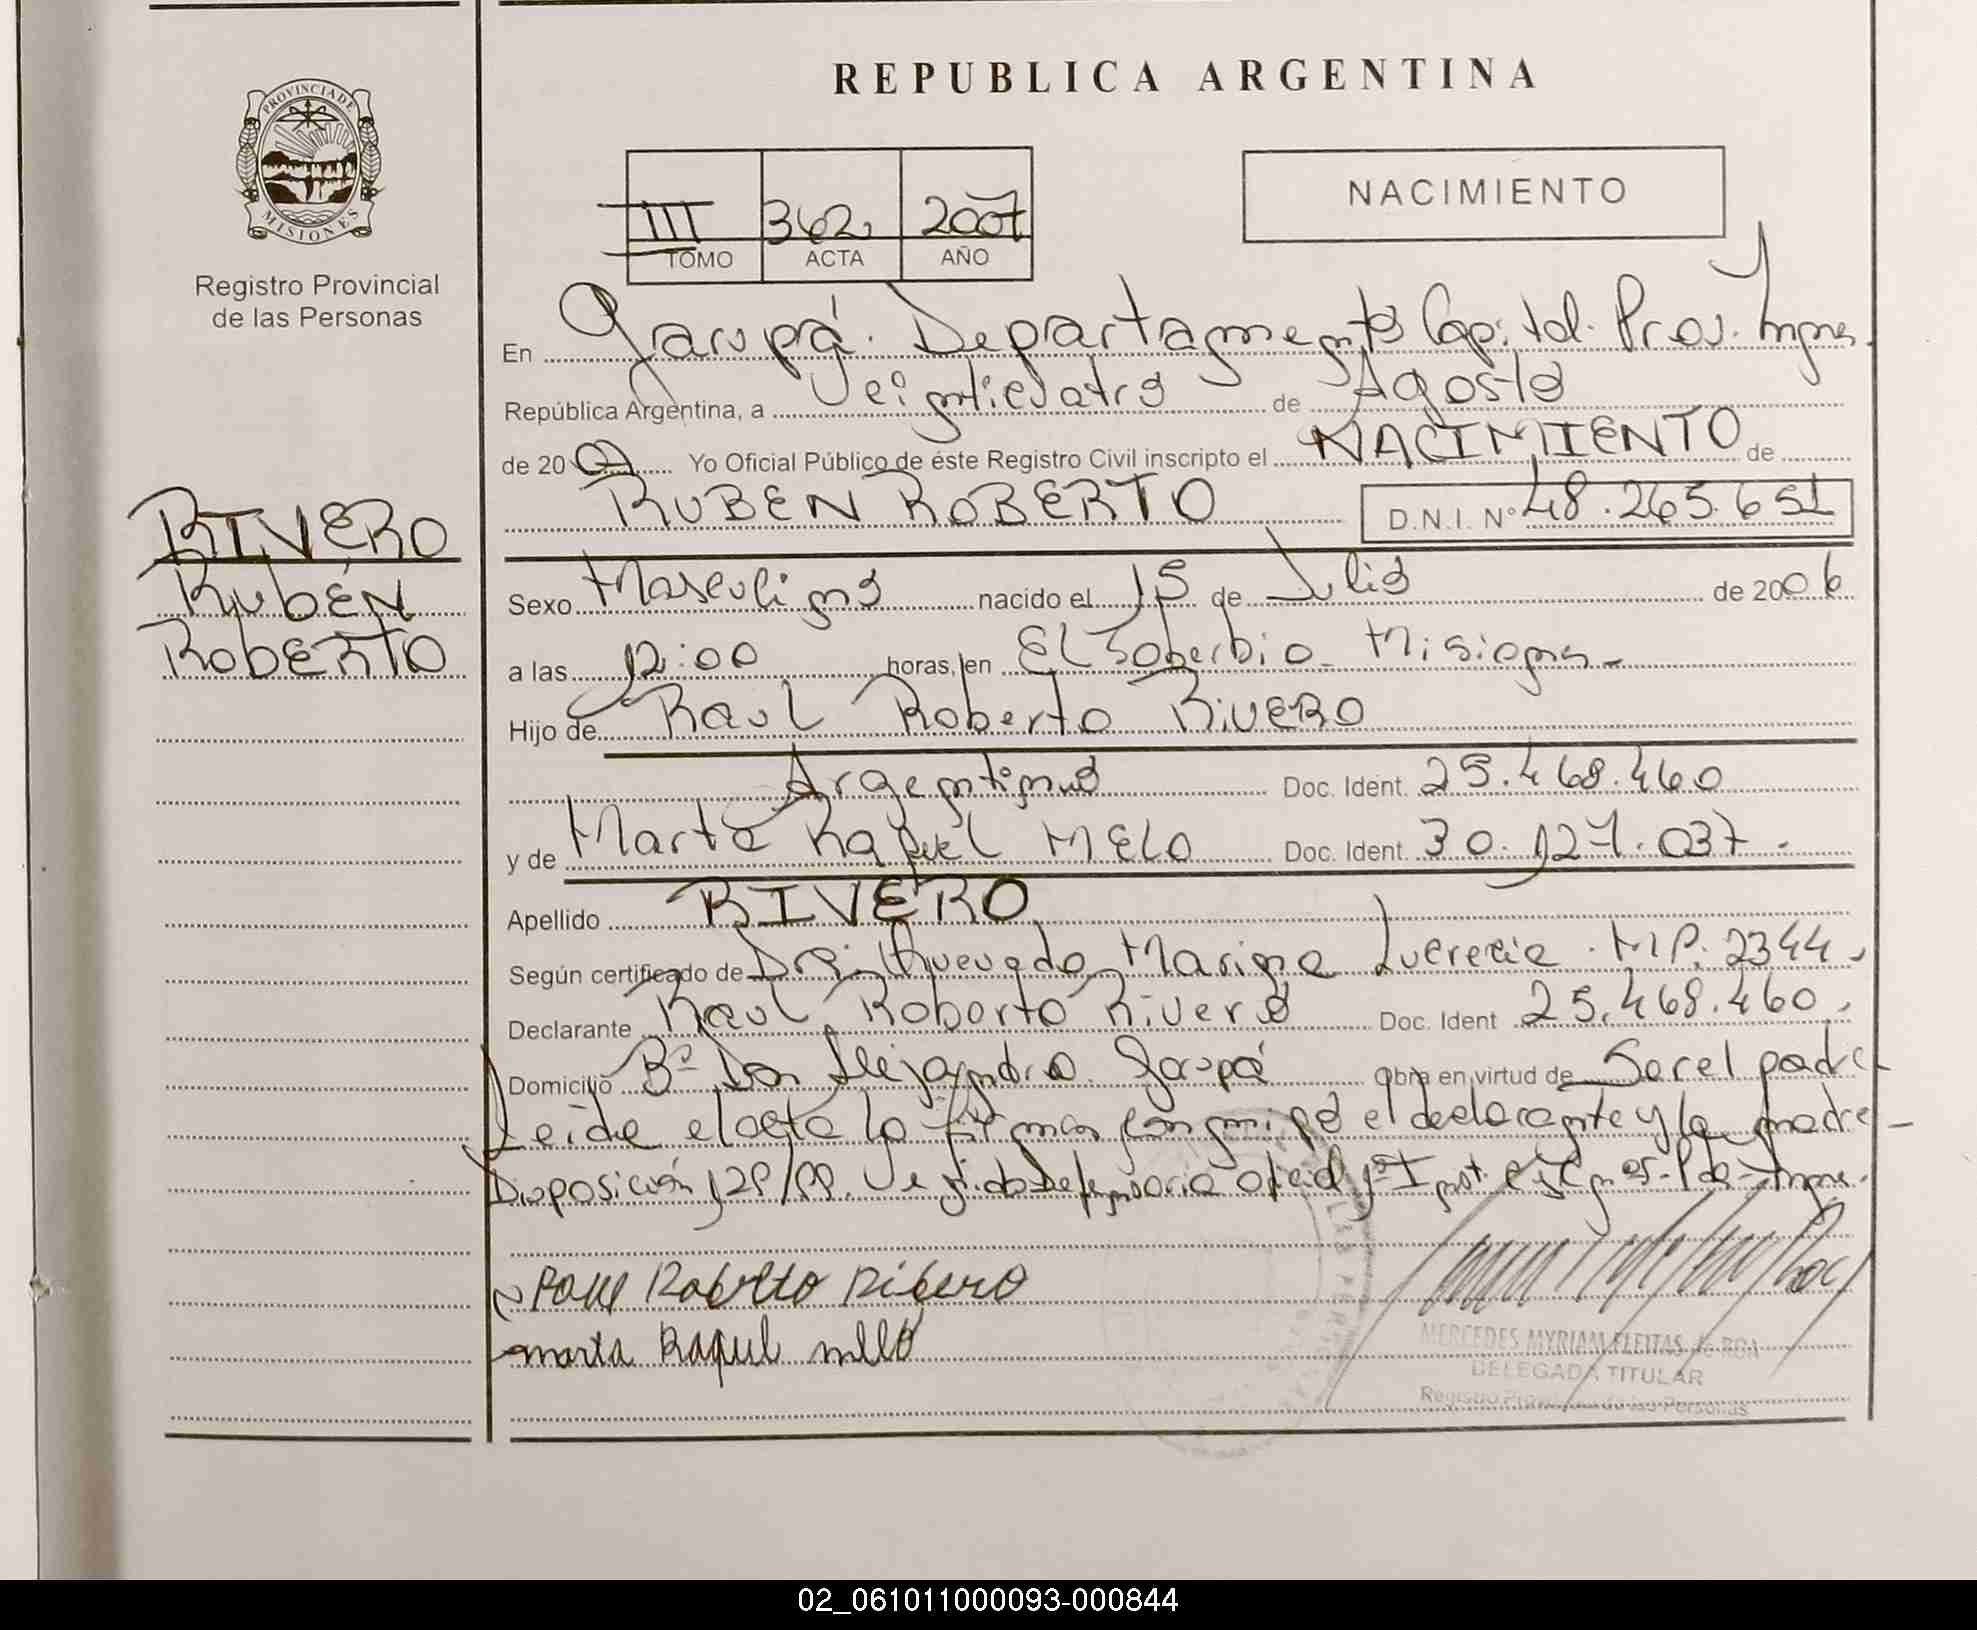 REPUBLICA ARGENTINA
PROVINCIA DE
MISIONES
Registro Provincial
de las Personas
III 362 2007
TOMO ACTA AÑO
NACIMIENTO
En Garupá. Departamento Capital. Prov. Mnes.
República Argentina, a Veinticuatro de Agosto
de 2007 Yo Oficial Público de éste Registro Civil inscripto el NACIMIENTO de
RUBEN ROBERTO D.N.I. Nº 48.265.651
RIVERO
Rubén
Roberto
Sexo Masculino nacido el 15 de Julio de 2006
a las 12:00 horas, en El Soberbio - Misiones -
Hijo de Raul Roberto RIVERO
Argentino Doc. Ident. 25.468.460
y de Marta Raquel MELO Doc. Ident. 30.127.037.-
Apellido RIVERO
Según certificado de Marina Lucrecia. MP: 2344.
Declarante Raul Roberto Rivero Doc. Ident 25.468.460.
Domicilio Bº Don Alejandro. Garupá Obra en virtud de Ser el padre
Leida el acta la firman conmigo el declarante y la madre -
Disposición Defensoria oficial
Raul Roberto Ribero
marta Raquel mello
MERCEDES MYRIAM FLEITAS de ROA
DELEGADA TITULAR
Registro Provincial de las Personas
02_061011000093-000844